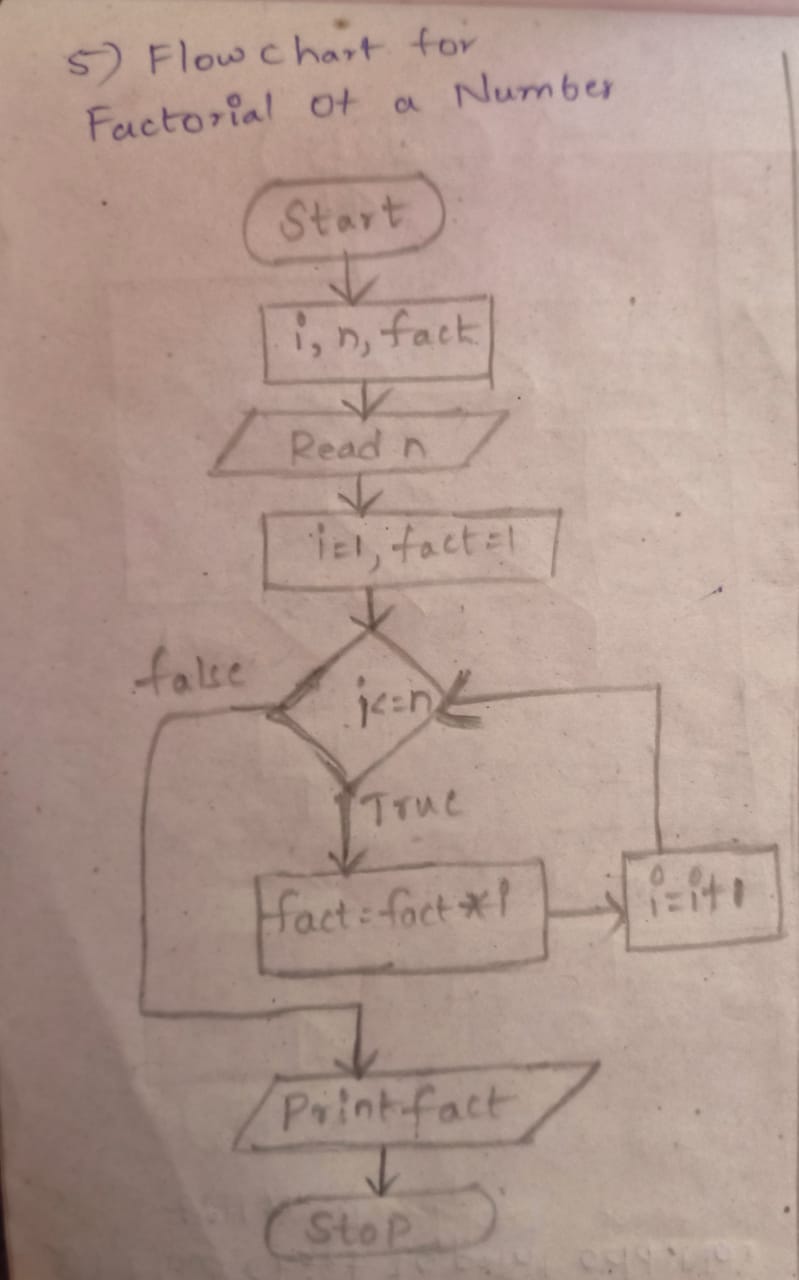 5) Flow chart for
Factorial of a Number
Start
i, n, fact
Read n
i=1, fact=1
false
i<=n
True
fact=fact*i
i=i+1
Print fact
Stop